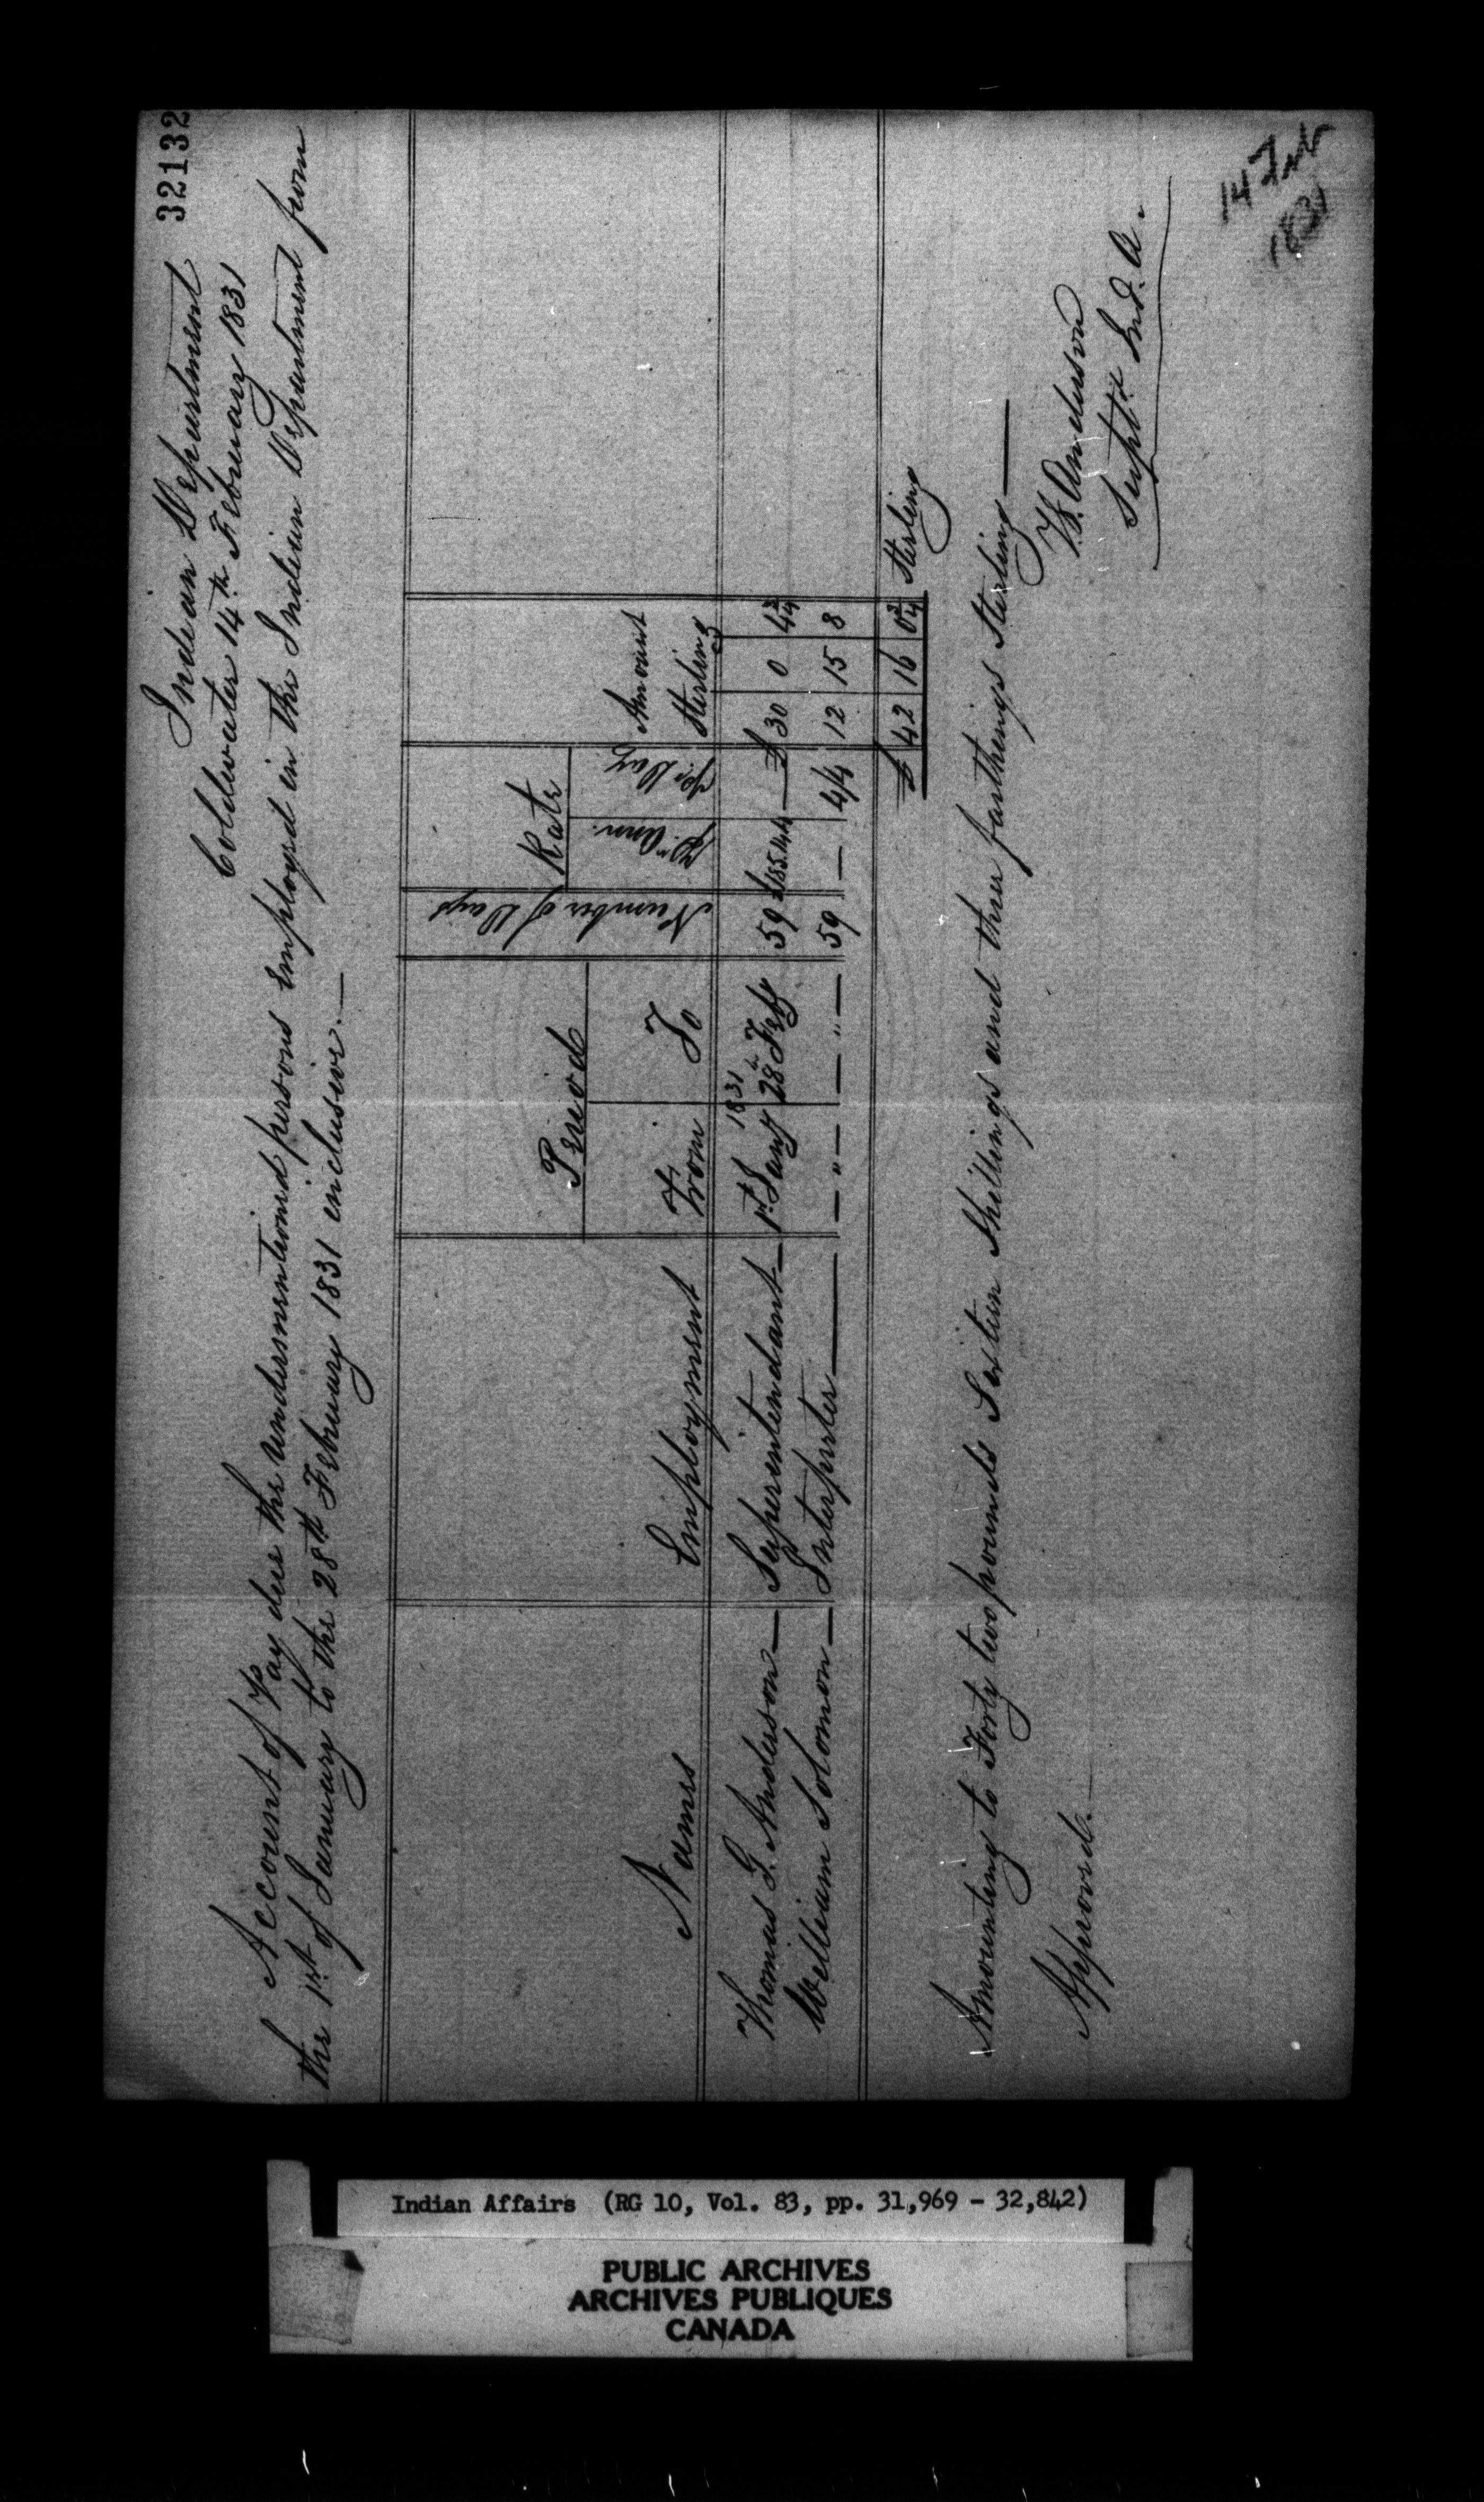 32132
Indian Department
Coldwater 14th February 1831
Account of Pay due the undermentioned persons employed in the Indian Department from
the 1st of January to the 28th February 1831 inclusive.—
Names Employment Period From To Number of Days Rate pr. Ann. pr. Day Amount Sterling
1831
Thomas G. Anderson — Superintendant — 1st Jany 28th Feby 59 £185.44 — £ 30 0 4¾
William Solomon — Interpreter — — " — — " — 59 — 4/4 12 15 8
£ 42 16 0¾ Sterling
Amounting to Forty two pounds Sixteen Shillings and three farthings Sterling —
T.G. Anderson
Supt. Ind. A.
Approved.
14 Feb
1831
Indian Affairs (RG 10, Vol. 83, pp. 31,969 - 32,842)
PUBLIC ARCHIVES
ARCHIVES PUBLIQUES
CANADA